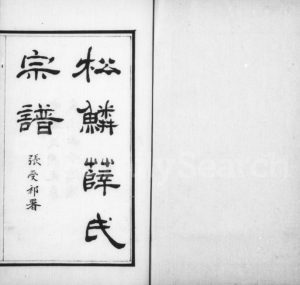 松鱗薛氏
宗譜
張受祁署